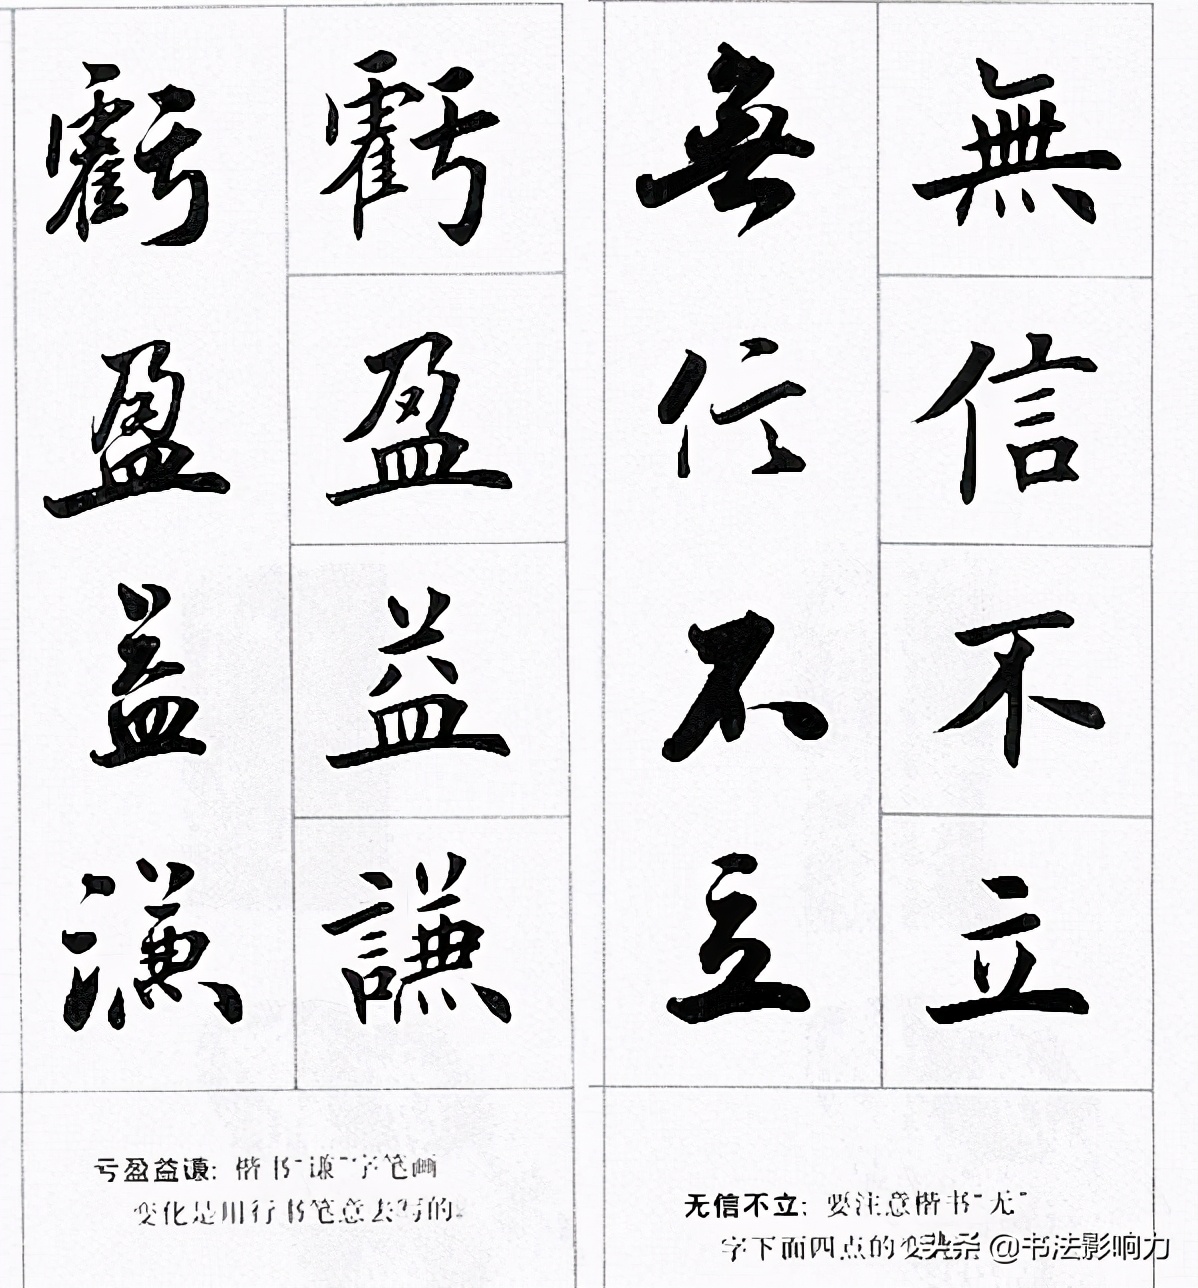 無信不立
無信不立
无信不立：要注意楷书“无”
字下面四点的变
虧盈益謙
虧盈益謙
亏盈益谦：楷书“谦”字笔画
变化是用行书笔意去写的。
头条 @书法影响力